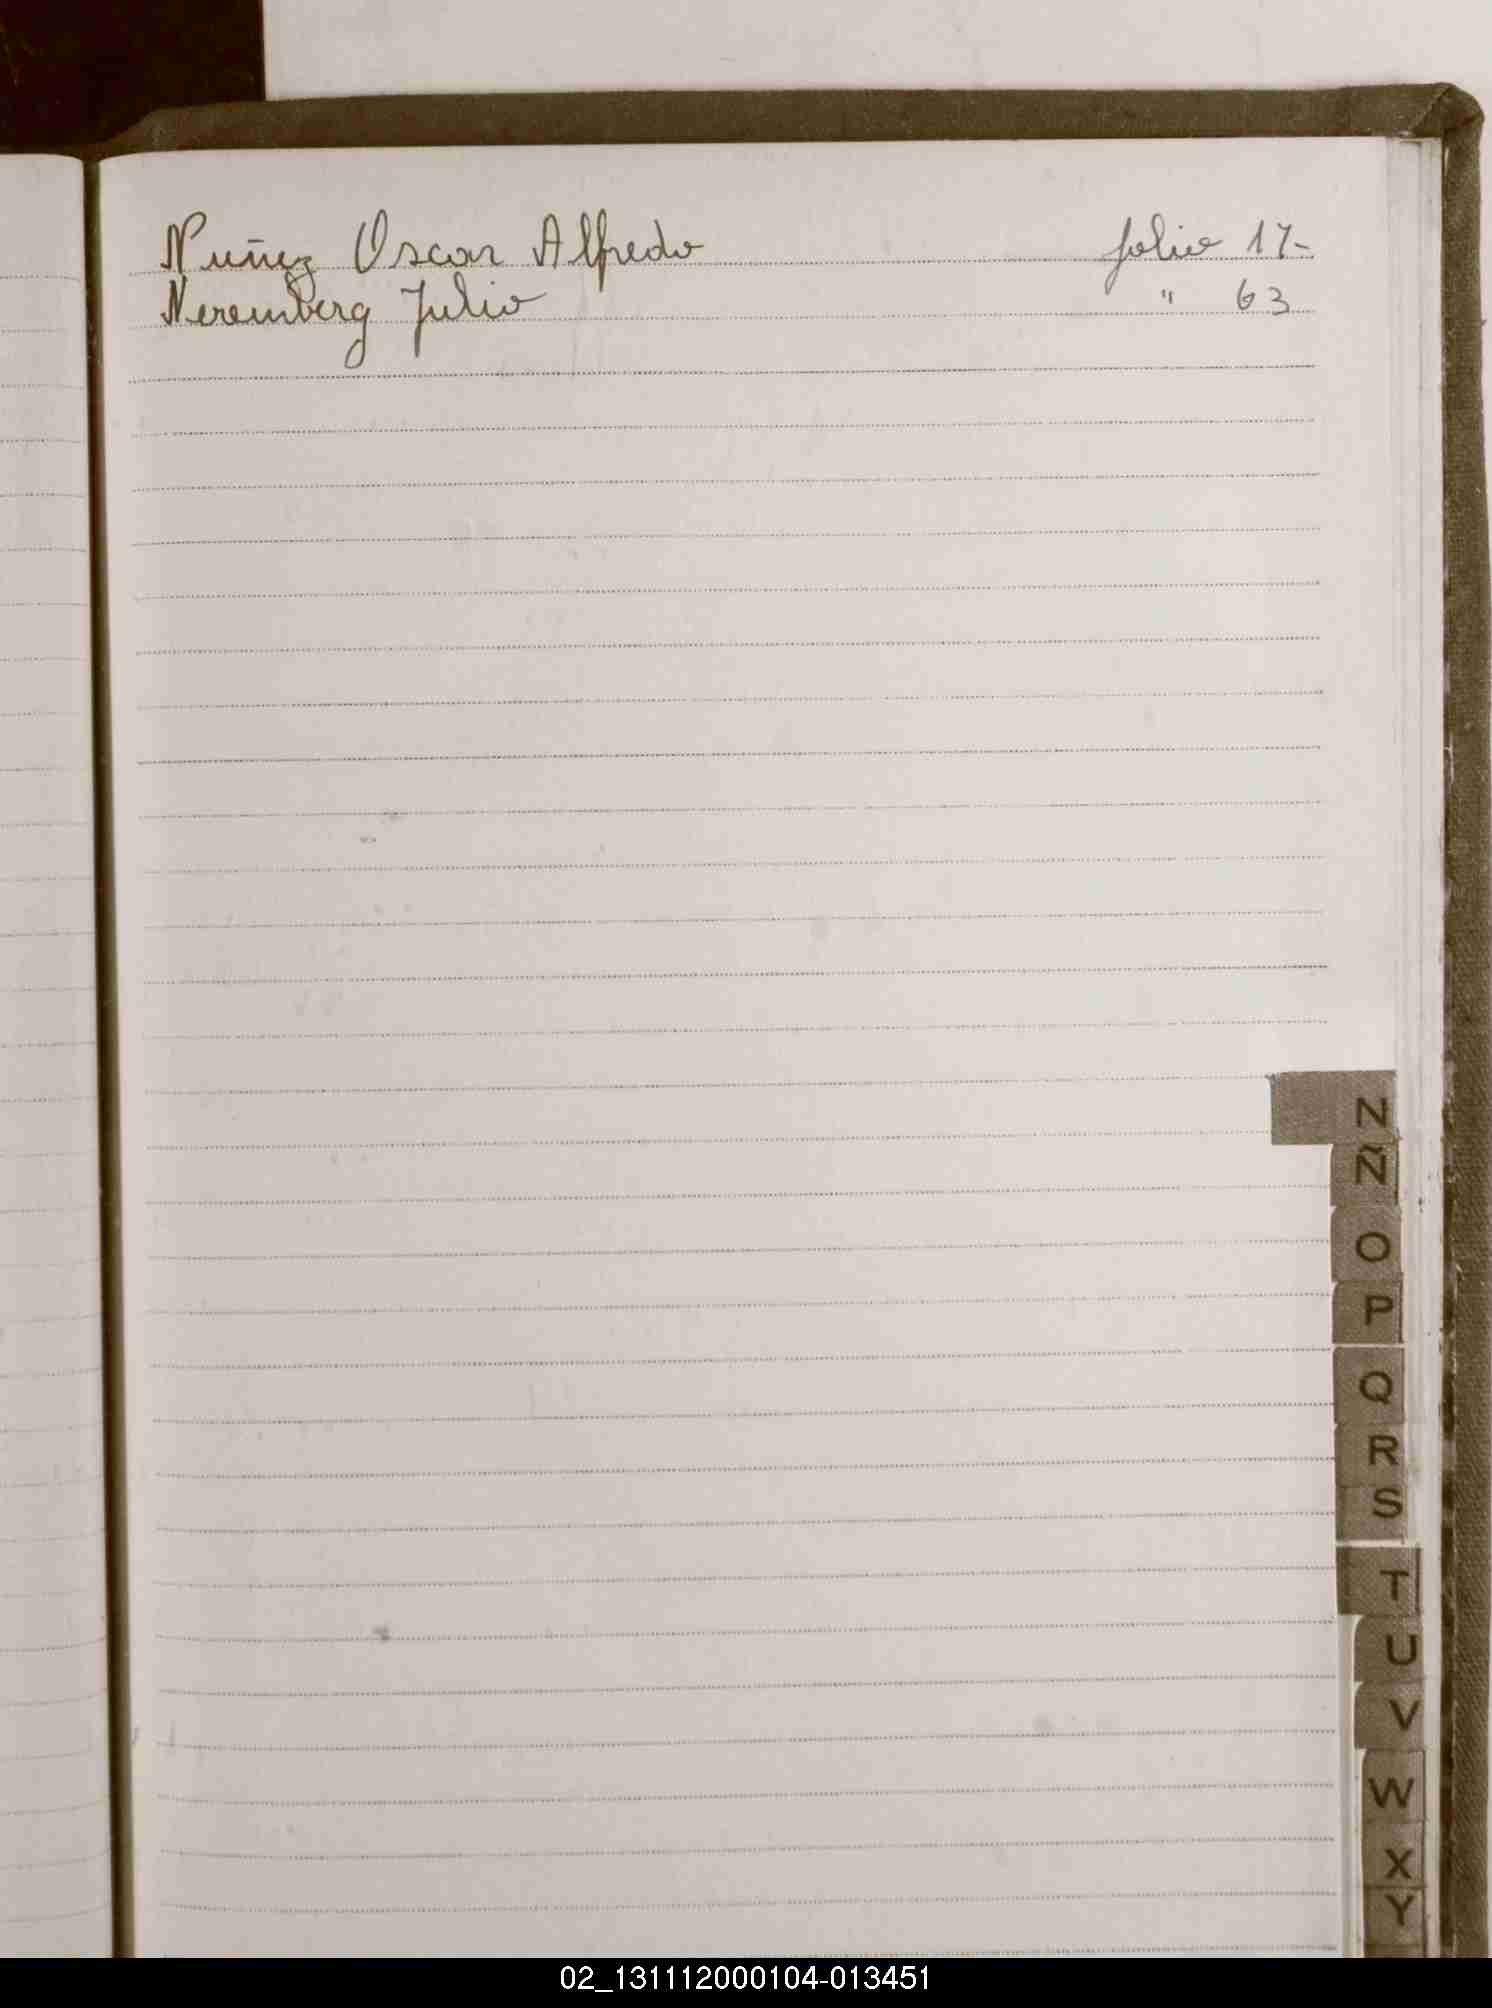 Nuñez Oscar Alfredo folio 17-
Neremberg Julio " 63
N
Ñ
O
P
Q
R
S
T
U
V
W
X
Y
02_131112000104-013451